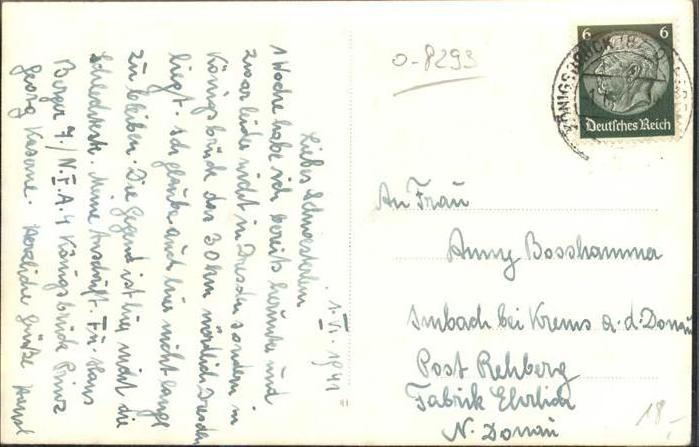 1.VI.1941
Liebes Schwesterlein
1 Woche habe ich bereits herunten und
zwar leider nicht in Dresden sondern in
Königsbrück das 30 km nördlich Dresden
liegt. Ich glaube auch hier nicht lange
zu bleiben. Die Gegend ist hier nicht die
schlechteste. Meine Anschrift. Fu. Hans
Berger 7./N.E.A. 4 Königsbrück Prinz
Georg Kaserne. Herzliche Grüße Hansl
o-8293
6 6
Deutsches Reich
KÖNIGSBRÜCK
An Frau
Anny Bosshammer
Imbach bei Krems a.d. Donau
Post Rehberg
Fabrik Ehrlich
N. Donau
18,-